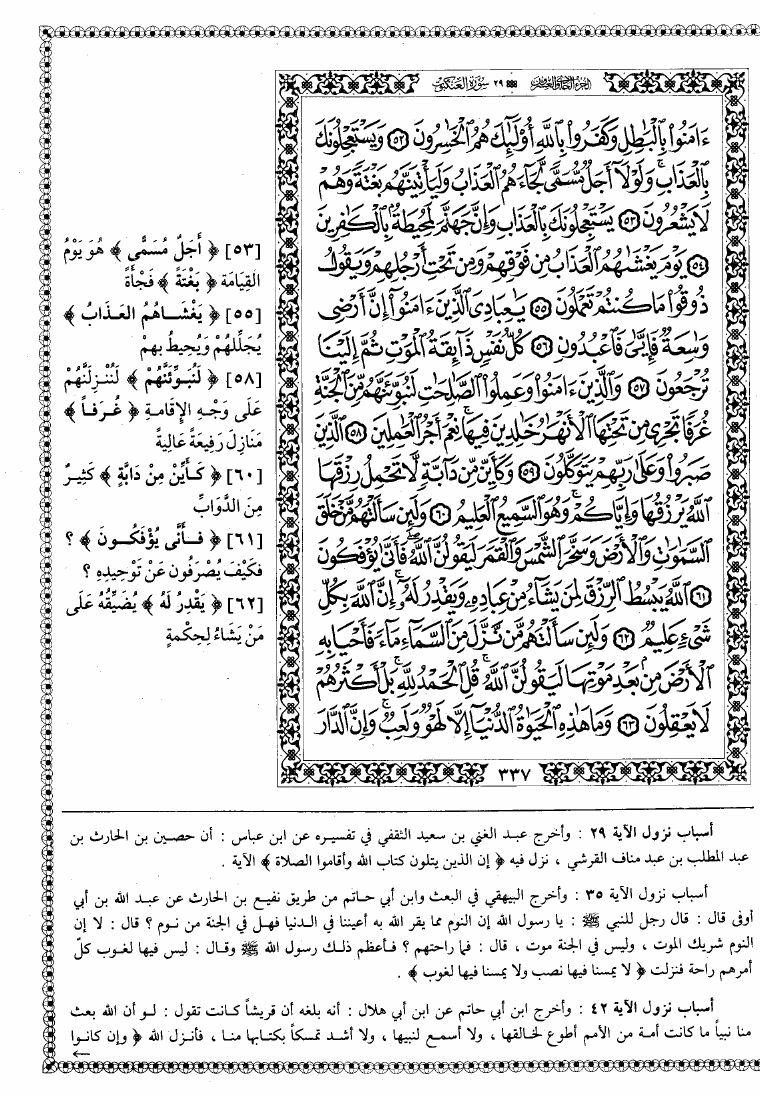 الجزء الحادي والعشرون ٢٩ سورة العنكبوت
ءَامَنُوا۟ بِٱلْبَـٰطِلِ وَكَفَرُوا۟ بِٱللَّهِ أُو۟لَـٰٓئِكَ هُمُ ٱلْخَـٰسِرُونَ ٥٢ وَيَسْتَعْجِلُونَكَ
بِٱلْعَذَابِ ۚ وَلَوْلَآ أَجَلٌ مُّسَمًّى لَّجَآءَهُمُ ٱلْعَذَابُ وَلَيَأْتِيَنَّهُم بَغْتَةً وَهُمْ
لَا يَشْعُرُونَ ٥٣ يَسْتَعْجِلُونَكَ بِٱلْعَذَابِ وَإِنَّ جَهَنَّمَ لَمُحِيطَةٌۢ بِٱلْكَـٰفِرِينَ
٥٤ يَوْمَ يَغْشَىٰهُمُ ٱلْعَذَابُ مِن فَوْقِهِمْ وَمِن تَحْتِ أَرْجُلِهِمْ وَيَقُولُ
ذُوقُوا۟ مَا كُنتُمْ تَعْمَلُونَ ٥٥ يَـٰعِبَادِىَ ٱلَّذِينَ ءَامَنُوٓا۟ إِنَّ أَرْضِى
وَٰسِعَةٌ فَإِيَّـٰىَ فَٱعْبُدُونِ ٥٦ كُلُّ نَفْسٍ ذَآئِقَةُ ٱلْمَوْتِ ثُمَّ إِلَيْنَا
تُرْجَعُونَ ٥٧ وَٱلَّذِينَ ءَامَنُوا۟ وَعَمِلُوا۟ ٱلصَّـٰلِحَـٰتِ لَنُبَوِّئَنَّهُم مِّنَ ٱلْجَنَّةِ
غُرَفًا تَجْرِى مِن تَحْتِهَا ٱلْأَنْهَـٰرُ خَـٰلِدِينَ فِيهَا ۚ نِعْمَ أَجْرُ ٱلْعَـٰمِلِينَ ٥٨ ٱلَّذِينَ
صَبَرُوا۟ وَعَلَىٰ رَبِّهِمْ يَتَوَكَّلُونَ ٥٩ وَكَأَيِّن مِّن دَآبَّةٍ لَّا تَحْمِلُ رِزْقَهَا
ٱللَّهُ يَرْزُقُهَا وَإِيَّاكُمْ ۚ وَهُوَ ٱلسَّمِيعُ ٱلْعَلِيمُ ٦٠ وَلَئِن سَأَلْتَهُم مَّنْ خَلَقَ
ٱلسَّمَـٰوَٰتِ وَٱلْأَرْضَ وَسَخَّرَ ٱلشَّمْسَ وَٱلْقَمَرَ لَيَقُولُنَّ ٱللَّهُ ۖ فَأَنَّىٰ يُؤْفَكُونَ
٦١ ٱللَّهُ يَبْسُطُ ٱلرِّزْقَ لِمَن يَشَآءُ مِنْ عِبَادِهِۦ وَيَقْدِرُ لَهُۥٓ ۚ إِنَّ ٱللَّهَ بِكُلِّ
شَىْءٍ عَلِيمٌ ٦٢ وَلَئِن سَأَلْتَهُم مَّن نَّزَّلَ مِنَ ٱلسَّمَآءِ مَآءً فَأَحْيَا بِهِ
ٱلْأَرْضَ مِنۢ بَعْدِ مَوْتِهَا لَيَقُولُنَّ ٱللَّهُ ۚ قُلِ ٱلْحَمْدُ لِلَّهِ ۚ بَلْ أَكْثَرُهُمْ
لَا يَعْقِلُونَ ٦٣ وَمَا هَـٰذِهِ ٱلْحَيَوٰةُ ٱلدُّنْيَآ إِلَّا لَهْوٌ وَلَعِبٌ ۚ وَإِنَّ ٱلدَّارَ
٣٣٧
[٥٣] ﴿ أَجَلٌ مُسَمًّى ﴾ هُوَ يَوْمُ
القِيَامَة ﴿ بَغْتَةً ﴾ فَجْأَةً
[٥٥] ﴿ يَغْشَاهُمُ العَذَابُ ﴾
يُجَلِّلُهُمْ وَيُحِيطُ بِهِمْ
[٥٨] ﴿ لَنُبَوِّئَنَّهُمْ ﴾ لَنُنْزِلَنَّهُمْ
عَلَى وَجْهِ الإِقَامَةِ ﴿ غُرَفاً ﴾
مَنَازِلَ رَفِيعَةً عَالِيةً
[٦٠] ﴿ كَأَيِّنْ مِنْ دَابَّةٍ ﴾ كَثِيرٌ
مِنَ الدَّوَابِّ
[٦١] ﴿ فَأَنَّى يُؤْفَكُونَ ﴾ ؟
فَكَيْفَ يُصْرَفُون عَنْ تَوْحِيدِهِ ؟
[٦٢] ﴿ يَقْدِرُ لَهُ ﴾ يُضَيِّقُهُ عَلَى
مَنْ يَشَاءُ لِحِكْمَةٍ
أسباب نزول الآية ٢٩ : وأخرج عبد الغني بن سعيد الثقفي في تفسيره عن ابن عباس : أن حصين بن الحارث بن
عبد المطلب بن عبد مناف القرشي ، نزل فيه ﴿ إن الذين يتلون كتاب الله وأقاموا الصلاة ﴾ الآية .
أسباب نزول الآية ٣٥ : وأخرج البيهقي في البعث وابن أبي حاتم من طريق نفيع بن الحارث عن عبد الله بن أبي
أوفى قال : قال رجل للنبي ﷺ : يا رسول الله إن النوم مما يقر الله به أعيننا في الدنيا فهل في الجنة من نوم ؟ قال : لا إن
النوم شريك الموت ، وليس في الجنة موت ، قال : فما راحتهم ؟ فأعظم ذلك رسول الله ﷺ وقال : ليس فيها لغوب كلّ
أمرهم راحة فنزلت ﴿ لا يمسنا فيها نصب ولا يمسنا فيها لغوب ﴾ .
أسباب نزول الآية ٤٢ : وأخرج ابن أبي حاتم عن ابن أبي هلال : أنه بلغه أن قريشاً كانت تقول : لو أن الله بعث
منا نبياً ما كانت أمة من الأمم أطوع لخالقها ، ولا أسمع لنبيها ، ولا أشد تمسكاً بكتابها منا ، فأنزل الله ﴿ وإن كانوا
←